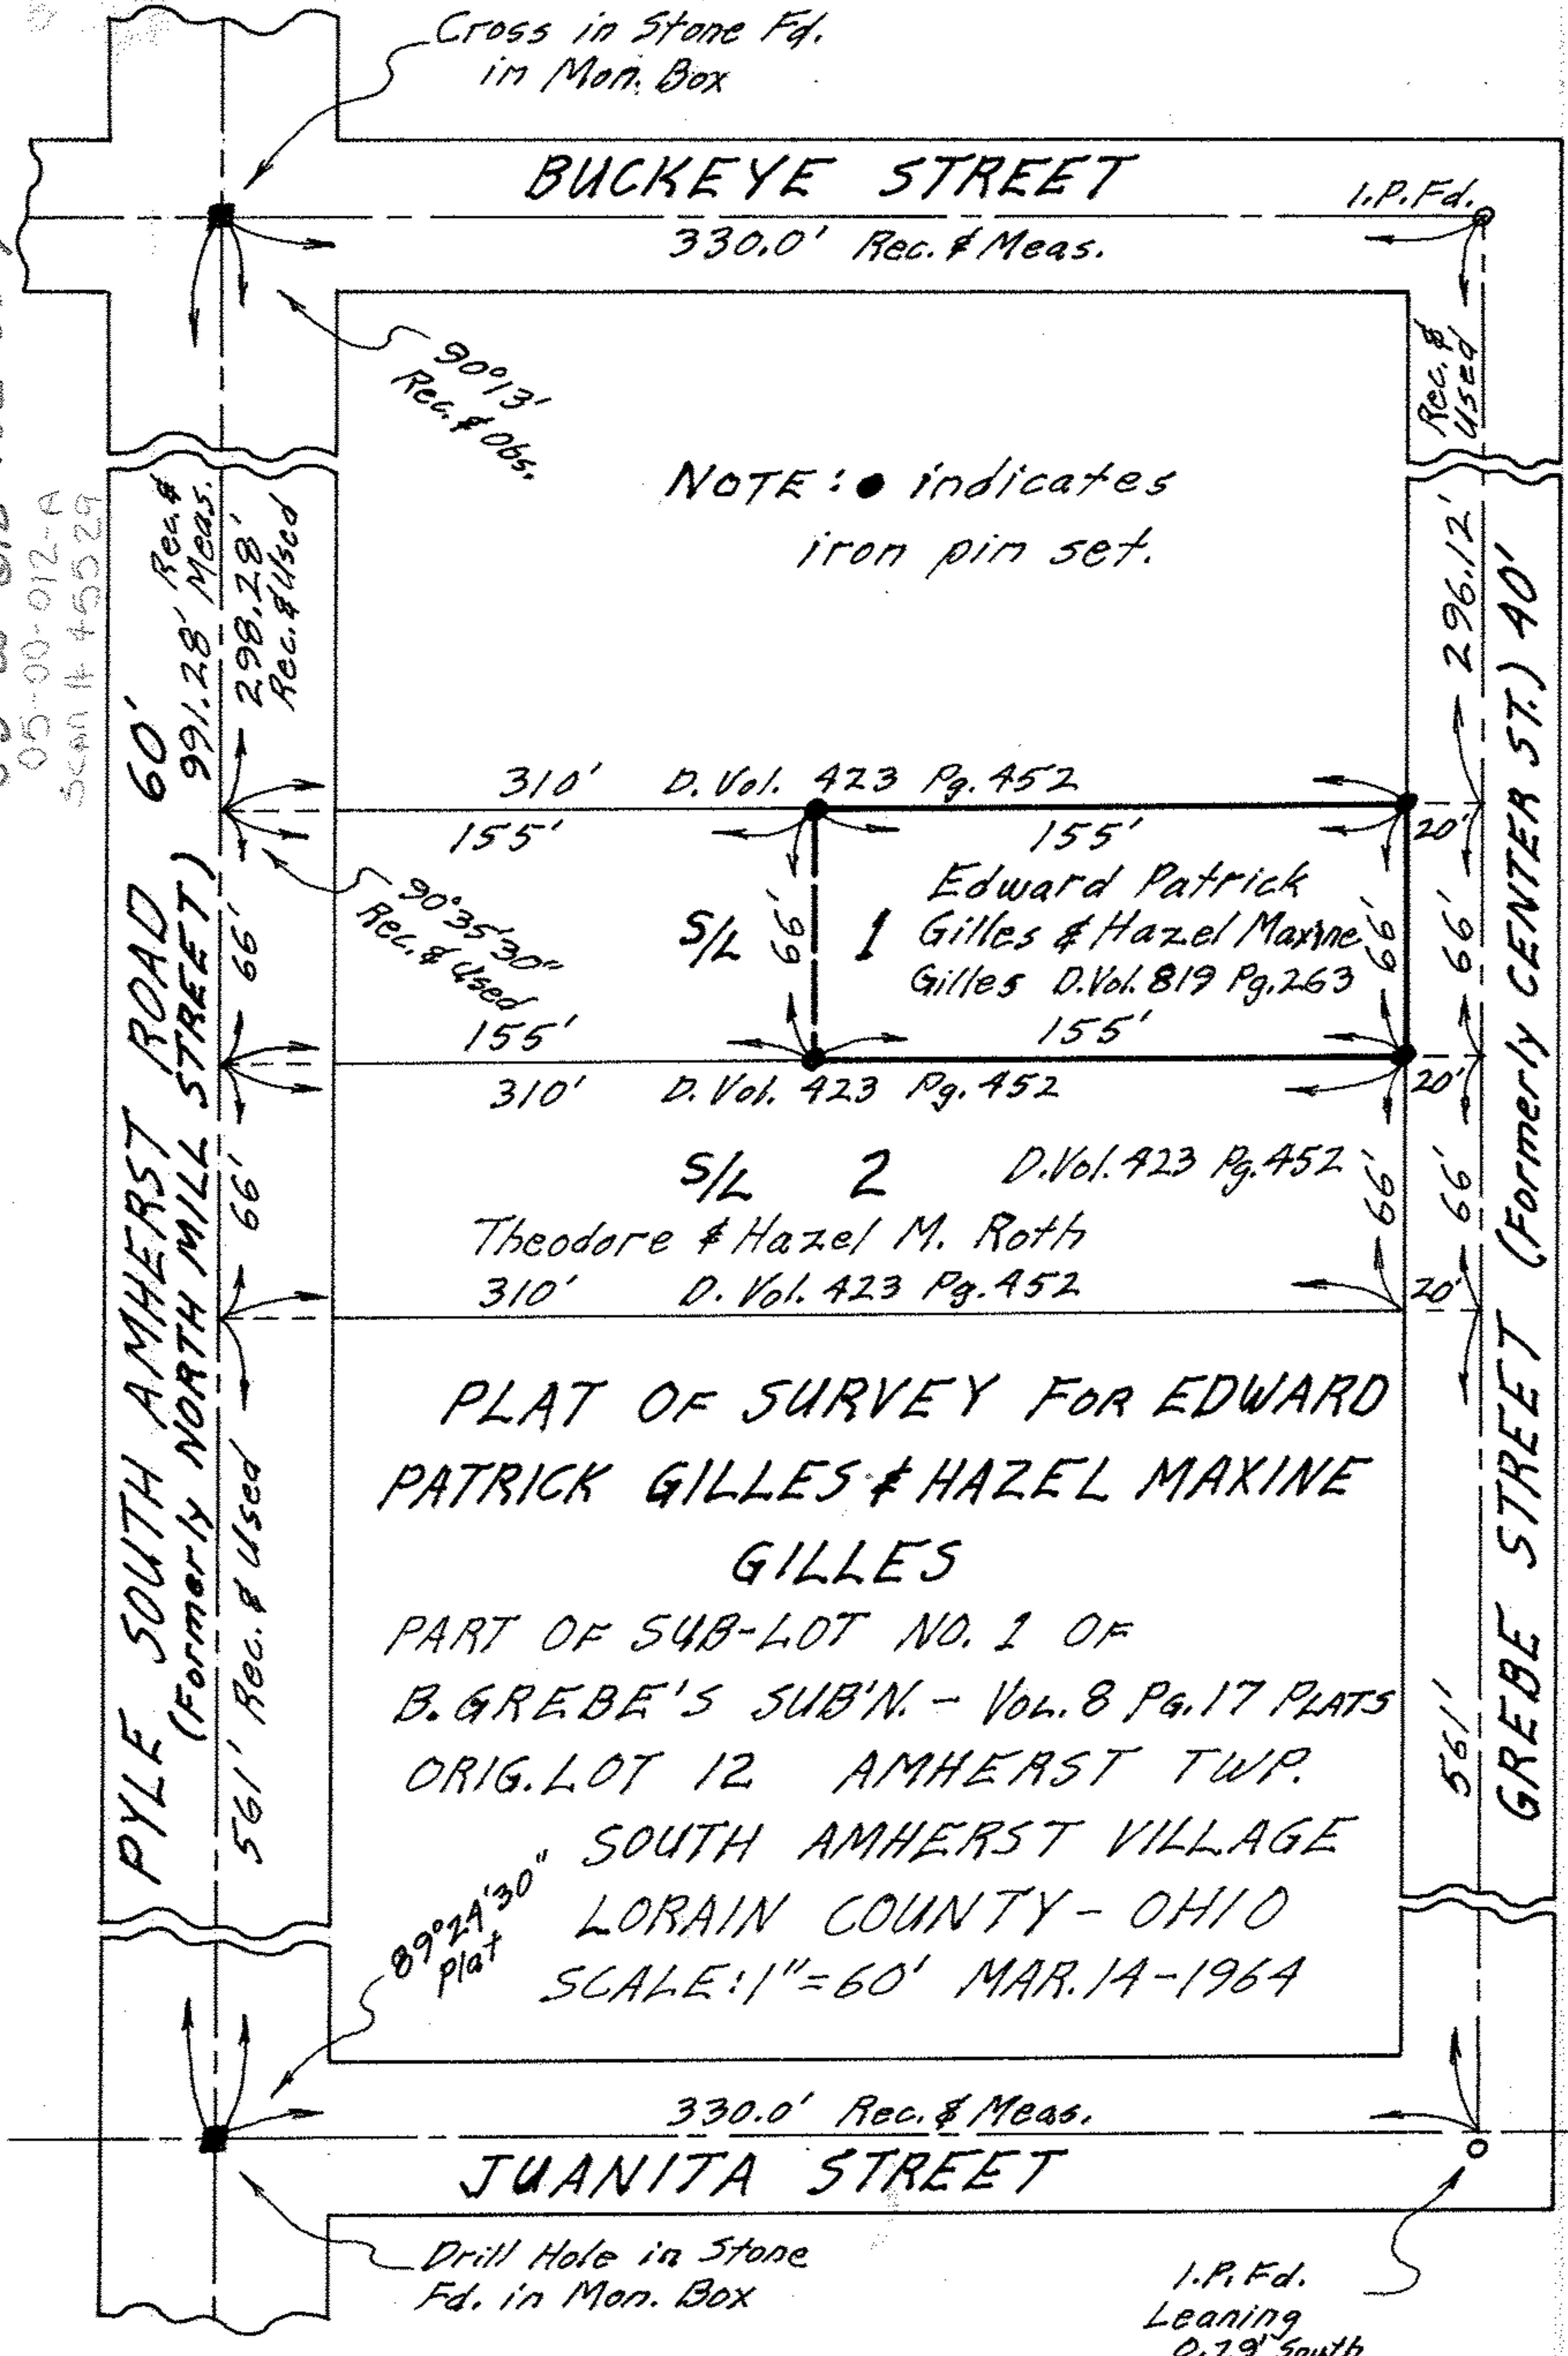 Cross in Stone Fd.
in Mon. Box
BUCKEYE STREET
I.P.Fd.
330.0' Rec. & Meas.
90°13'
Rec. & Obs.
Rec. &
Used
NOTE: ● indicates
iron pin set.
05-00-012-A
Scan # 45529
PYLE SOUTH AMHERST ROAD 60'
(Formerly NORTH MILL STREET)
991.28' Rec. &
Meas.
298.28'
Rec. & Used
296.12'
GREBE STREET (Formerly CENTER ST.) 40'
310' D. Vol. 423 Pg. 452
155'
155'
20'
90°35'30"
Rec. & Used
66'
S/L
66'
1
Edward Patrick
Gilles & Hazel Maxine
Gilles D.Vol. 819 Pg. 263
66'
66'
155'
155'
310' D. Vol. 423 Pg. 452
20'
66'
S/L 2 D.Vol. 423 Pg. 452
66'
66'
Theodore & Hazel M. Roth
310' D. Vol. 423 Pg. 452
20'
PLAT OF SURVEY FOR EDWARD
PATRICK GILLES & HAZEL MAXINE
GILLES
561' Rec. & Used
PART OF SUB-LOT NO. 1 OF
B. GREBE'S SUB'N. - VOL. 8 PG. 17 PLATS
561'
ORIG. LOT 12 AMHERST TWP.
SOUTH AMHERST VILLAGE
LORAIN COUNTY - OHIO
SCALE: 1" = 60' MAR. 14-1964
89°24'30"
plat
330.0' Rec. & Meas.
JUANITA STREET
Drill Hole in Stone
Fd. in Mon. Box
I.P. Fd.
Leaning
0.79' South